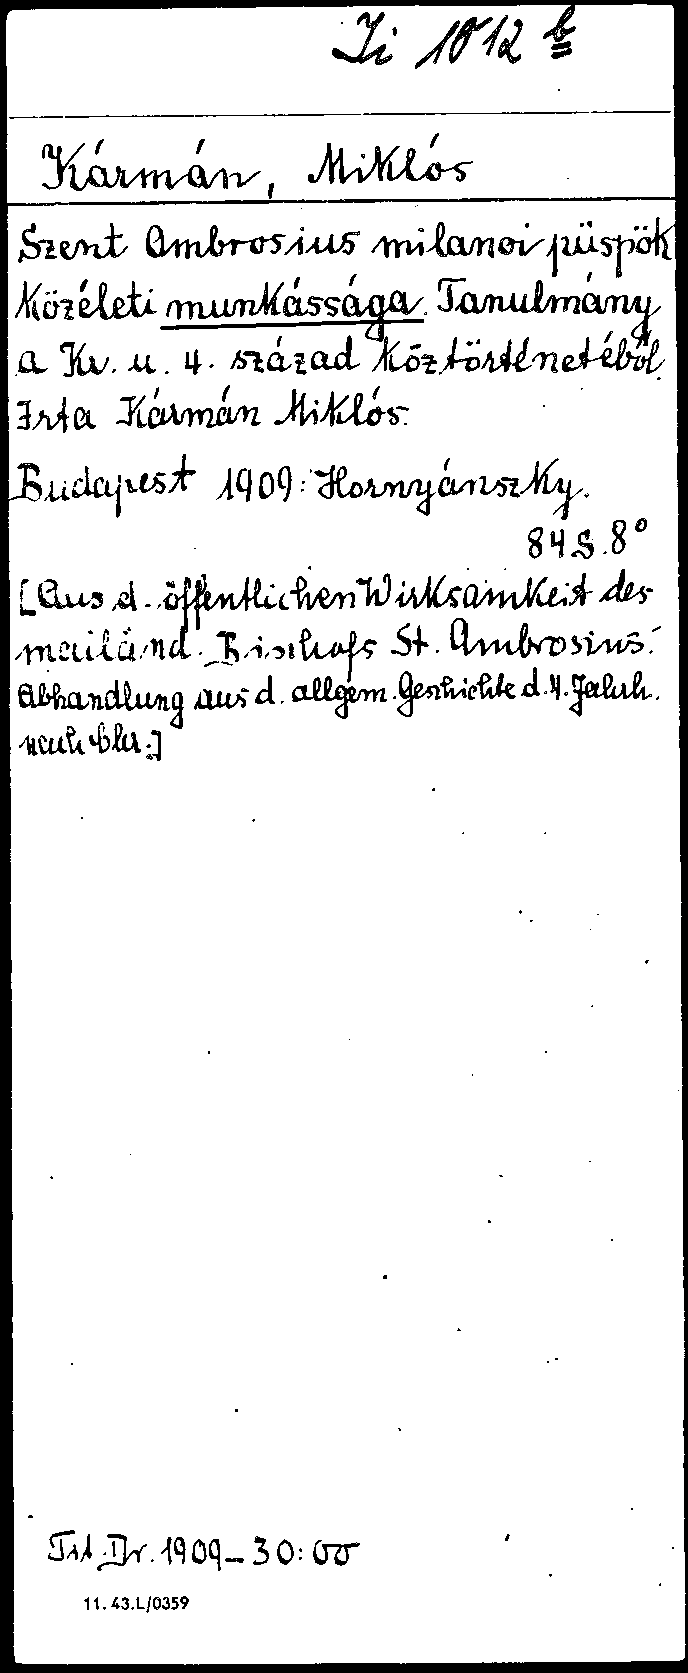 Ji 1012 b
Kármán, Miklós
Szent Ambrosius milanoi püspök
közéleti munkássága. Tanulmány
a Kr. u. 4. század köztörténetéből.
Irta Kármán Miklós.
Budapest 1909: Hornyánszky.
84 S. 8°
[Aus d. öffentlichen Wirksamkeit des
mailänd. Bischofs St. Ambrosius.
Abhandlung aus d. allgem. Geschichte d. 4. Jahrh.
nach Chr.]
Dr. 1909-30:
11.43.L/0359